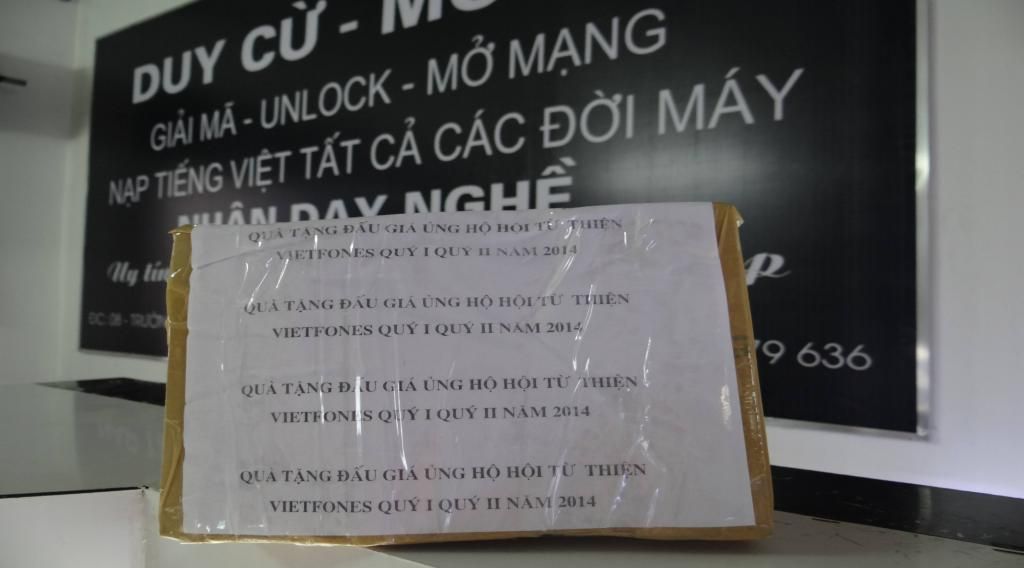 DUY CỪ -
GIẢI MÃ - UNLOCK - MỞ MẠNG
NẠP TIẾNG VIỆT TẤT CẢ CÁC ĐỜI MÁY
NHẬN DẠY NGHỀ
Uy tín
ĐC: 08 - TRƯỜN
79 636
QUÀ TẶNG ĐẤU GIÁ ỦNG HỘ HỘI TỪ THIỆN
VIETFONES QUÝ I QUÝ II NĂM 2014
QUÀ TẶNG ĐẤU GIÁ ỦNG HỘ HỘI TỪ THIỆN
VIETFONES QUÝ I QUÝ II NĂM 2014
QUÀ TẶNG ĐẤU GIÁ ỦNG HỘ HỘI TỪ THIỆN
VIETFONES QUÝ I QUÝ II NĂM 2014
QUÀ TẶNG ĐẤU GIÁ ỦNG HỘ HỘI TỪ THIỆN
VIETFONES QUÝ I QUÝ II NĂM 2014